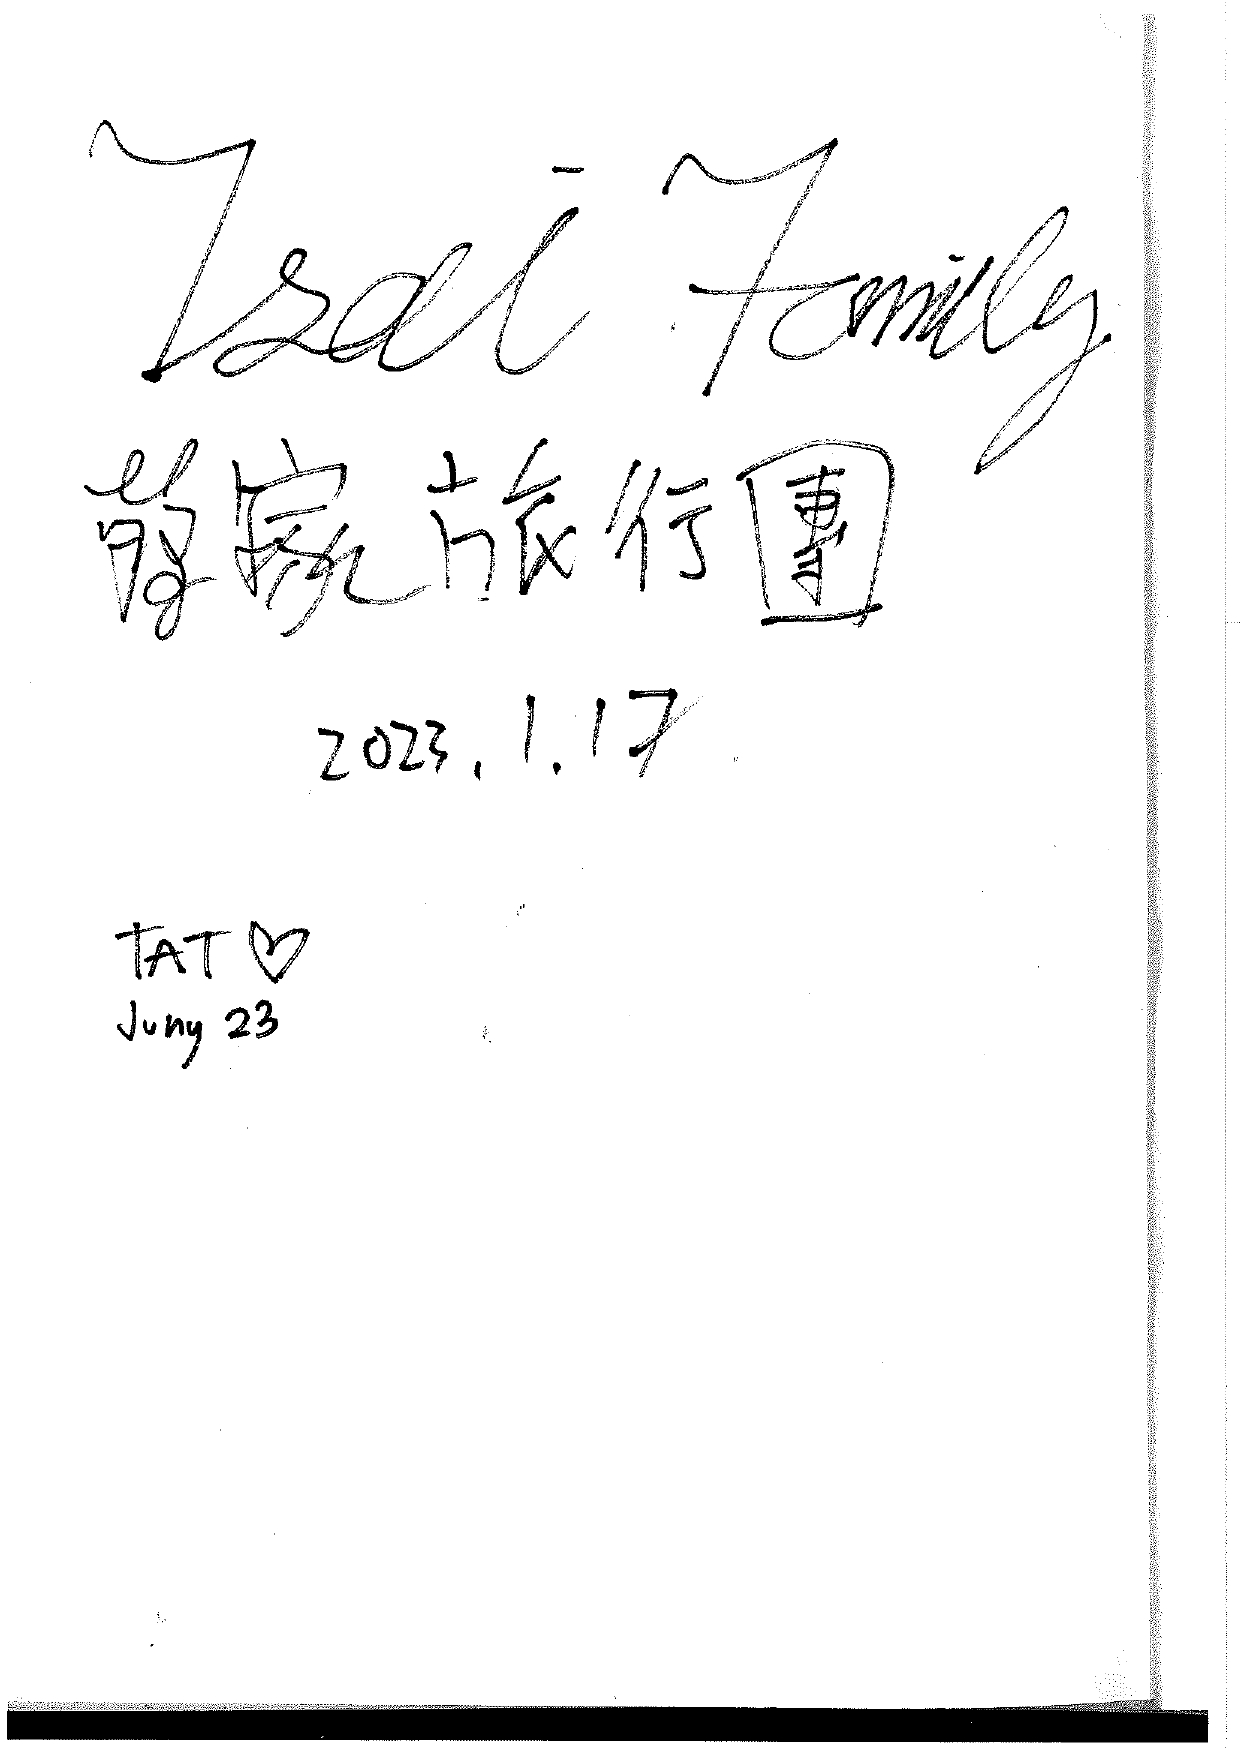 Tsai Family
蔡家旅行團
2023.1.17
TAT ♡
Juny 23